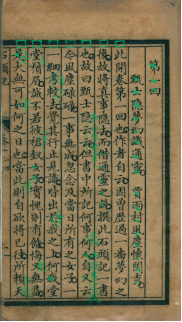 第一回
甄士隱夢幻識通靈 賈雨村風塵懷閨秀
此開卷第一回也作者自云因曾歷過一番夢幻之
後故將真事隱去而借通靈之說撰此石頭記一書
也故曰甄士隱云云但書中所記何事何人自又云
今風塵碌碌一事無成忽念及當日所有之女子一
一細考較去覺其行止見識皆出於我之上何我堂
堂鬚眉誠不若彼裙釵女子實愧則有餘悔又無益
是大無可如何之日也當此則自欲將已往所賴天
石頭記